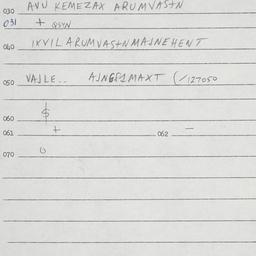 030 AVU KEMEZAX ARUMVASTN
031 + QSYN
040 IXVILARUMVASTNMAJNEHENT
050 VAJLE.. (/127050
060 $
061 + 062 -
070